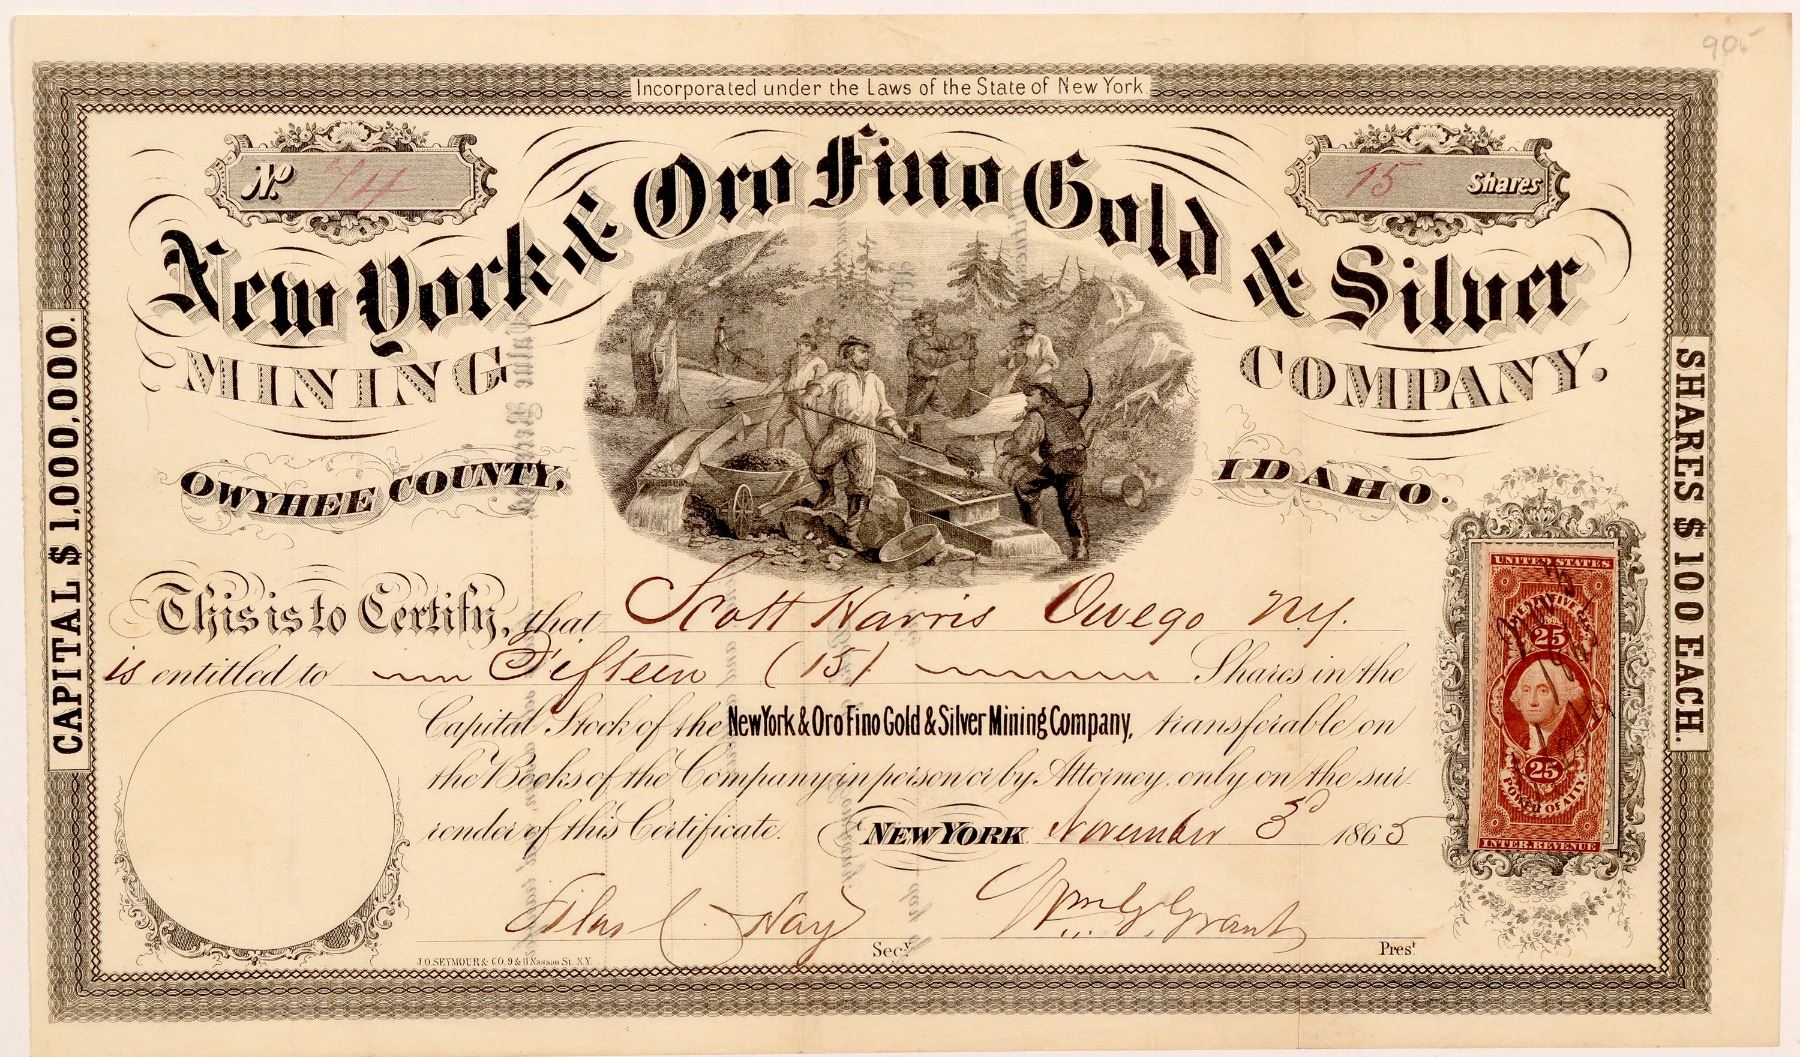 90.-
Incorporated under the Laws of the State of New York
No. 74
15 Shares
New York & Oro Fino Gold & Silver
MINING COMPANY.
OWYHEE COUNTY, IDAHO.
CAPITAL $1,000,000.
SHARES $100 EACH.
This is to Certify, that Scott Harris Owego NY.
is entitled to Fifteen (15) Shares in the
Capital Stock of the New York & Oro Fino Gold & Silver Mining Company, transferable on
the Books of the Company in person or by Attorney, only on the sur-
render of this Certificate. NEW YORK November 3d 1865
Silas C. Hay Secy
Wm. G. Grant Prest
J.O. SEYMOUR & CO. 9 & 11 Nassau St. N.Y.
UNITED STATES
25
25
POWER OF ATTY.
INTER. REVENUE